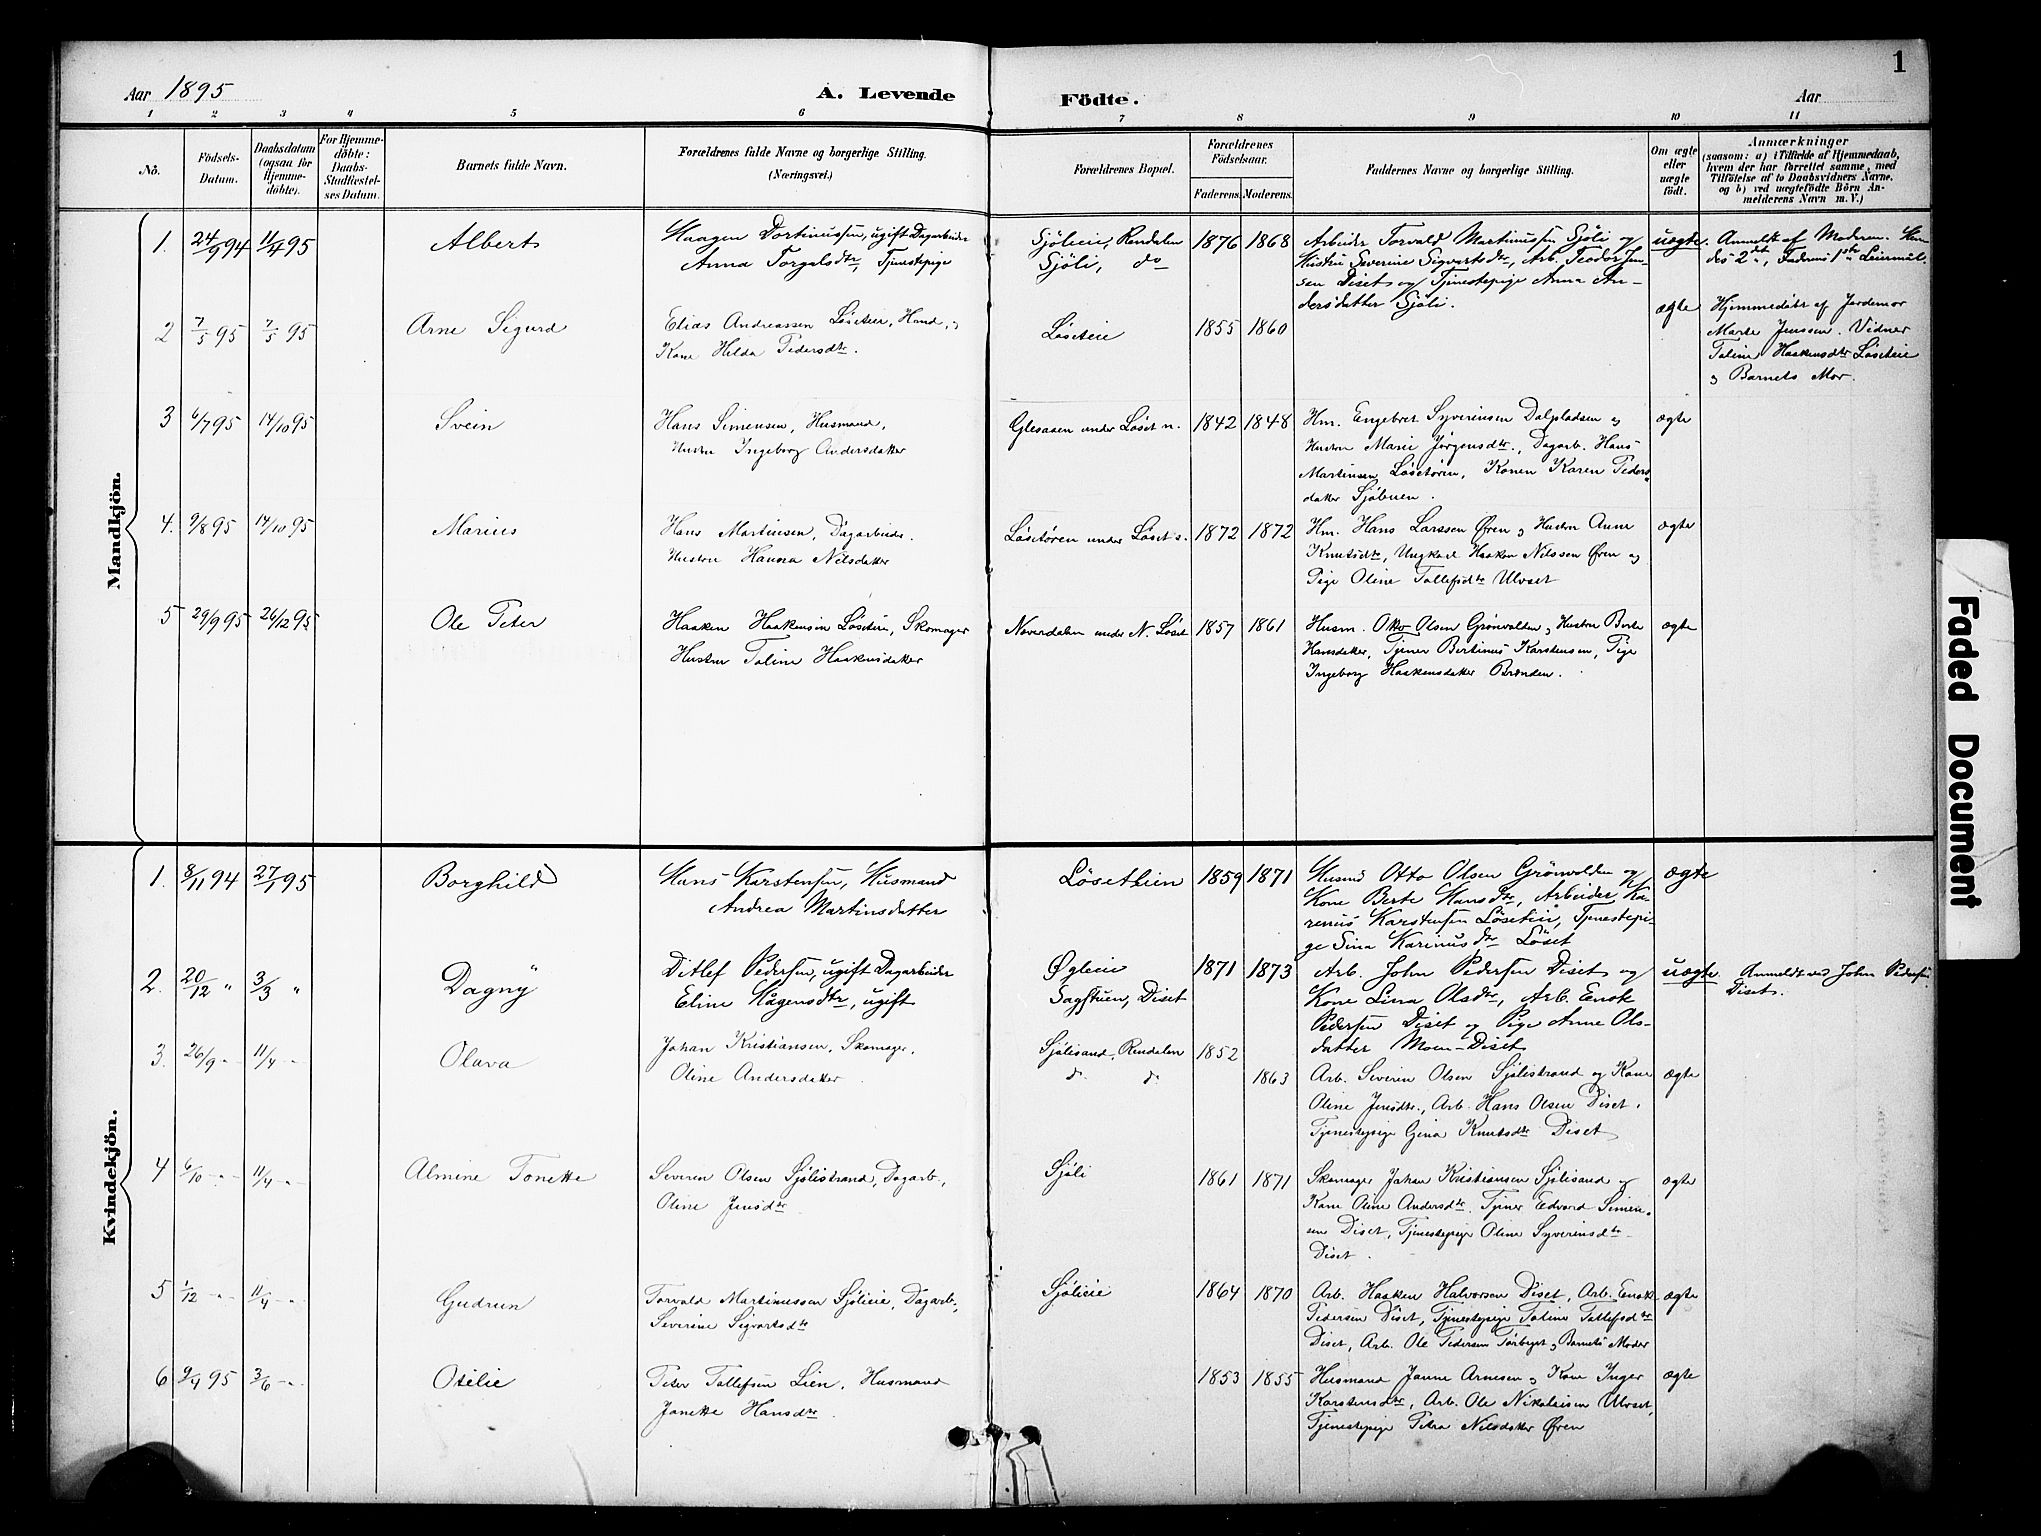 1
Aar 1895
A. Levende
Födte.
Aar
1 2 3 4 5 6 7 8 9 10 11
No.
Födsels-
Datum.
Daabsdatum
(ogsaa for
Hjemme-
döbte).
For Hjemme-
döbte:
Daabs-
Stadfæstel-
ses Datum.
Barnets fulde Navn.
Forældrenes fulde Navne og borgerlige Stilling.
(Næringsvei.)
Forældrenes Bopæl.
Forældrenes
Födselsaar.
Faderens. Moderens.
Faddernes Navne og borgerlige Stilling.
Om ægte
eller
uægte
födt.
Anmærkninger
(saasom: a) i Tilfælde af Hjemmedaab,
hvem der har forrettet samme, med
Tilföielse af to Daabsvidners Navne,
og b) ved uægtefödte Börn An-
melderens Navn m. V.)
Mandkjön.
1. 24/9 94 11/4 95 Albert
Haagen Dortinussen, ugift Dagarbeider
Anna Torgalsdtr, Tjenestepige
Sjölieie, Rendalen
Sjöli, do
1876 1868
Arbeider Torvald Martinussen Sjöli og
Hustru Severine Sigvartsdtr, Arb. Teodor Jen-
sen Diset og Tjenestepige Anna An-
dersdatter Sjöli.
uægte.
Anmeldt af Moderen. Hen-
des 2det, Faderens 1ste Leiermaal.
2 7/5 95 7/5 95 Arne Sigurd
Elias Andreassen Løseteie, Husmd, og
Kone Hilda Pedersdtr.
Løseteie
1855 1860
ægte
Hjemmedöbt af Jordemor
Marte Jenssen. Vidner
Taline Haakensdtr Løseteie
og Barnets Mor.
3 6/7 95 14/10 95 Svein
Hans Simensen, Husmand,
Hustru Ingeborg Andersdatter
Glesaasen under Løset n.
1842 1848
Hm. Engebret Syverinsen Dalpladsen og
Hustru Marie Jørgensdtr., Dagarb. Hans
Martinsen Løsetøren, Konen Karen Peders-
datter Sjøbuen.
ægte
4. 9/8 95 14/10 95 Marius
Hans Martinsen, Dagarbeider.
Hustru Hanna Nilsdatter
Løsetøren under Løset s.
1872 1872
Hm. Hans Larssen Øren og Hustru Anne
Knutsdtr, Ungkarl Haaken Nilssen Øren og
Pige Oline Tollefsdtr Ulvset
ægte
5 29/9 95 26/12 95 Ole Peter
Haaken Haakensen Løseteie, Skomager
Hustru Taline Haakensdatter
Noverdalen under N. Løset
1857 1861
Husm. Otto Olsen Grönvolden og Hustru Berte
Hansdatter, Tjener Bertinus Karstensen, Pige
Ingeborg Haakensdatter Brenden.
ægte
Kvindekjön.
1. 8/11 94 27/1 95 Borghild
Hans Karstensen, Husmand
Andrea Martinsdatter
Løsetlien
1859 1871
Husmd Otto Olsen Grönvolden og
Kone Berte Hansdtr, Arbeider Ka-
renus Karstensen Løseteie, Tjenestepi-
ge Sina Karinusdtr Løset
ægte
2. 20/12 " 3/3 " Dagny
Ditlef Pedersen, ugift Dagarbeider
Eline Hågensdtr, ugift
Øgleie
Sagstuen, Diset
1871 1873
Arb. John Pedersen Diset og
Kone Lina Olsdtr, Arb. Enok
Pedersen Diset og Pige Anne Ols-
datter Moen-Diset
uægte.
Anmeldt ved John Pedersen
Diset.
3. 26/9 -"- 11/4 -"- Olava
Johan Kristiansen, Skomager,
Oline Andersdatter.
Sjølisand, Rendalen
do. do.
1852
1863
Arb. Severin Olsen Sjölistrand og Kone
Oline Jensdtr., Arb. Hans Olsen Diset,
Tjenestepige Gina Knutsdtr Diset
ægte
4 6/10 -"- 11/4 -"- Almine Tonette
Severin Olsen Sjölistrand, Dagarb.,
Oline Jensdtr.
Sjöli
1861 1871
Skomager Johan Kristiansen Sjölisand og
Kone Oline Andersdtr. Tjener Edvard Simen-
sen Diset, Tjenestepige Oline Syverinsdtr
Diset.
ægte
5 1/12 -"- 11/4 -"- Gudrun
Torvald Martinussen Sjölieie, Dagarb.,
Severine Sigvartsdtr
Sjölieie
1864 1870
Arb. Haaken Halvorsen Diset, Arb. Enok
Pedersen Diset, Tjenestepige Taline Tollefsdtr
Diset, Arb. Ole Pedersen Torberget og Barnets Moder
ægte
6 9/4 95 3/6 -"- Otilie
Peter Tollefsen Lien, Husmand
Janette Hansdtr.
1853 1855
Husmand Janne Arnesen og Kone Inger
Karstensdtr, Arb. Ole Nikolaisen Ulvset,
Tjenestepige Petra Nilsdatter Øren
ægte
Faded Document